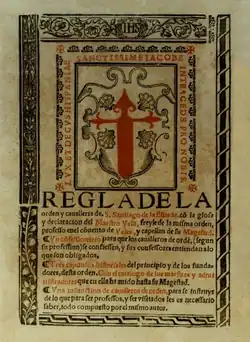 IHS
SANCTISSIME IACOBE
REGLA DE LA
orden y cavalleria de S. Santiago de la Espada, cō la glosa
y declaracion del Maestro Ysla, freyle de la misma orden,
professo en el convento de Veles, y capellan de su Magestad.
que los cavalleros de ordē, segun
su professiō se confiessen, y sus confessores
los que son obligados.
Tres del principio y de los fundadores
desta orden. Con el catalogo de los maestres y administradores
que en ella ha avido hasta su Magestad.
de cavalleros de orden, para se instruyr
de lo que para ser professos, y ser visitados les es necessario
saber, todo compuesto por el mismo autor.